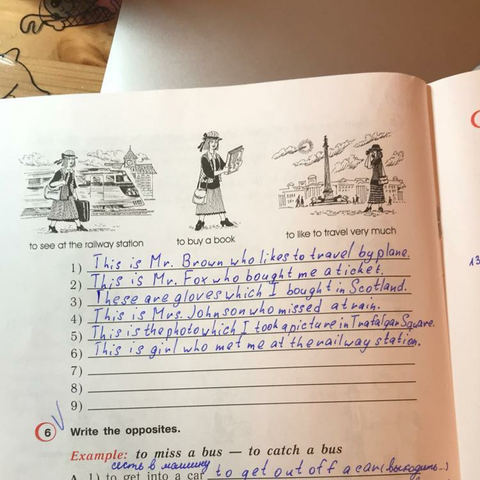 to see at the railway station
to buy a book
to like to travel very much
1) This is Mr. Brown who likes to travel by plane.
2) This is Mr. Fox who bought me a ticket.
3) These are gloves which I bought in Scotland.
4) This is Mrs. Johnson who missed a train.
5) This is the photo which I took a picture in Trafalgar Square.
6) This is girl who met me at the railway station.
7)
8)
9)
13
6 Write the opposites.
Example: to miss a bus — to catch a bus
сесть в машину
A 1) to get into a car to get out off a car (выходить...)